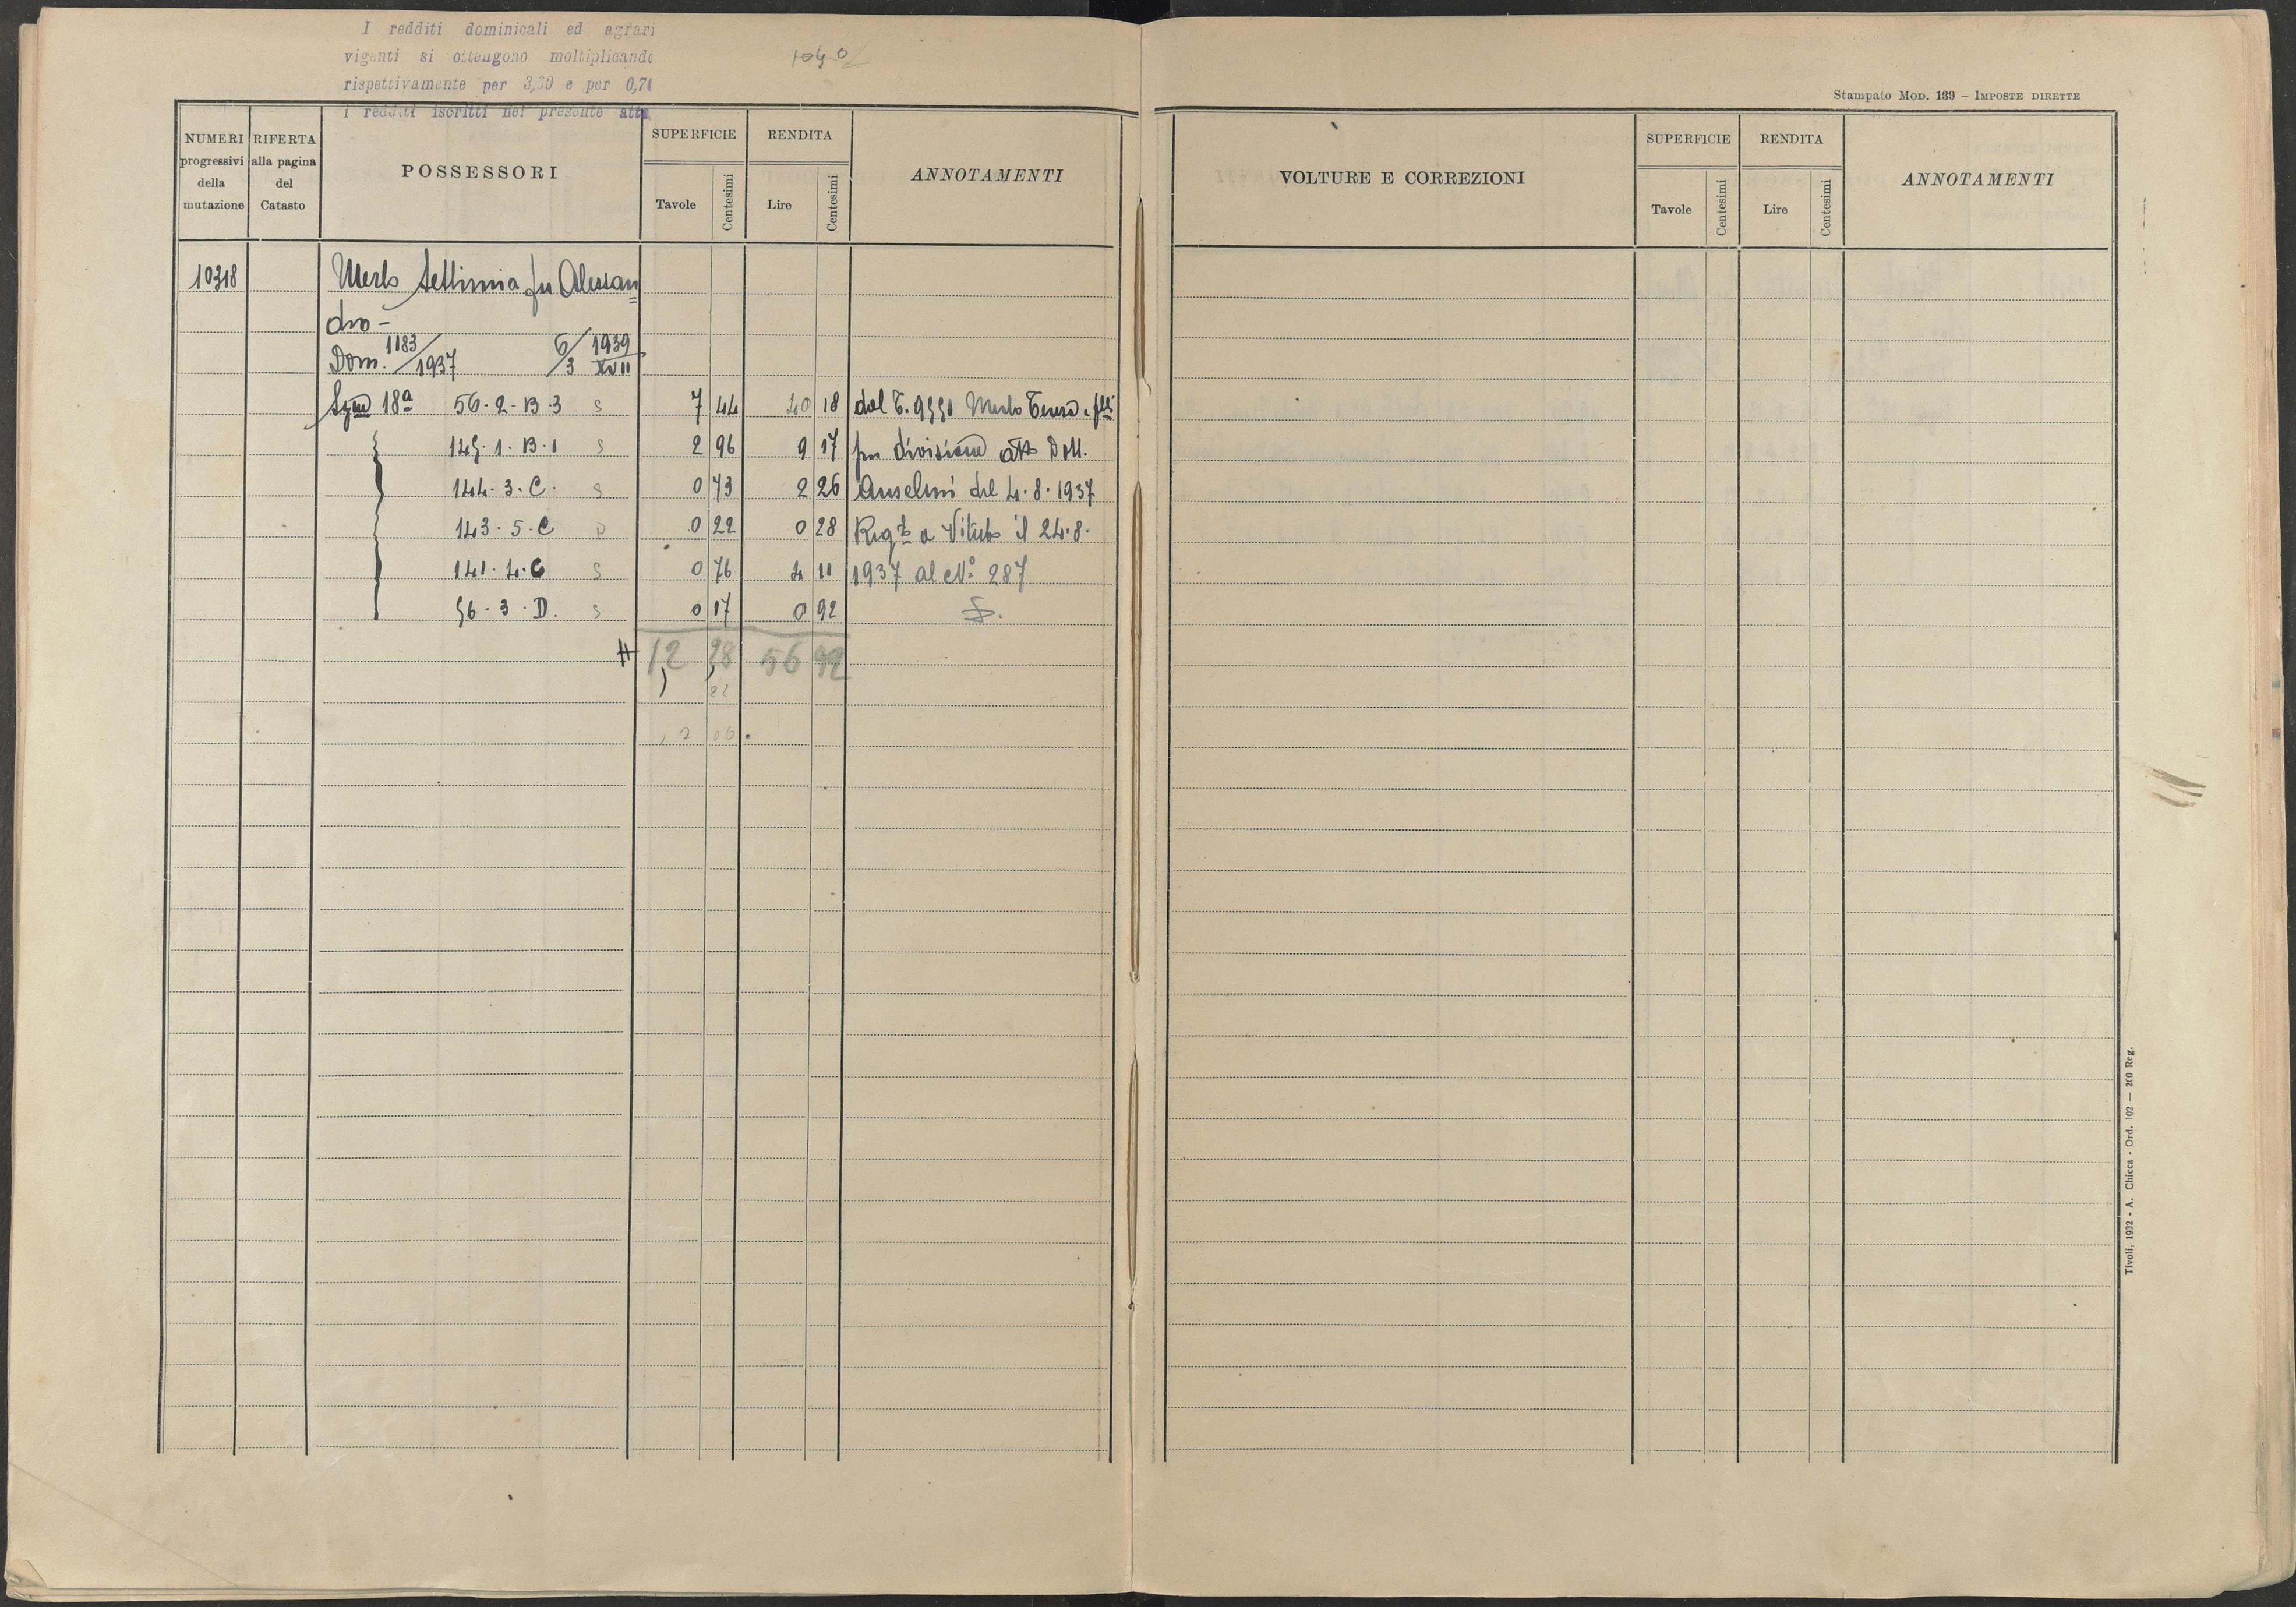 I redditi dominicali ed agrari
vigenti si ottengono moltiplicando
rispettivamente per 3,30 e per 0,74
i redditi iscritti nel presente atto
Stampato MOD. 139 – IMPOSTE DIRETTE
NUMERI progressivi della mutazione
RIFERTA alla pagina del Catasto
POSSESSORI
SUPERFICIE Tavole Centesimi
RENDITA Lire Centesimi
ANNOTAMENTI
10318 Merlo Settimia fu Alessan
dro -
Dom. 1183/1937 6/3 1939 XVII
Sezne 18a 56 - 2 - B - 3 S 7 44 40 18 dal T. Merlo Teresa e flli
1 - B - 1 S 2 96 9 17 per divisione atto Dott.
144 - 3 - C - S 0 73 2 26 Anselmi del 4 - 8 - 1937
143 - 5 - C 0 22 0 28 Regto a Viterbo il 24 - 8 -
141 - 4 - C S 0 76 4 11 1937 al No 287
56 - 3 - D. S 0 17 0 92
12 28 56 92
82
2 06
VOLTURE E CORREZIONI
SUPERFICIE Tavole Centesimi
RENDITA Lire Centesimi
ANNOTAMENTI
Tivoli, 1932 - A. Chicca - Ord. 102 — 200 Reg.